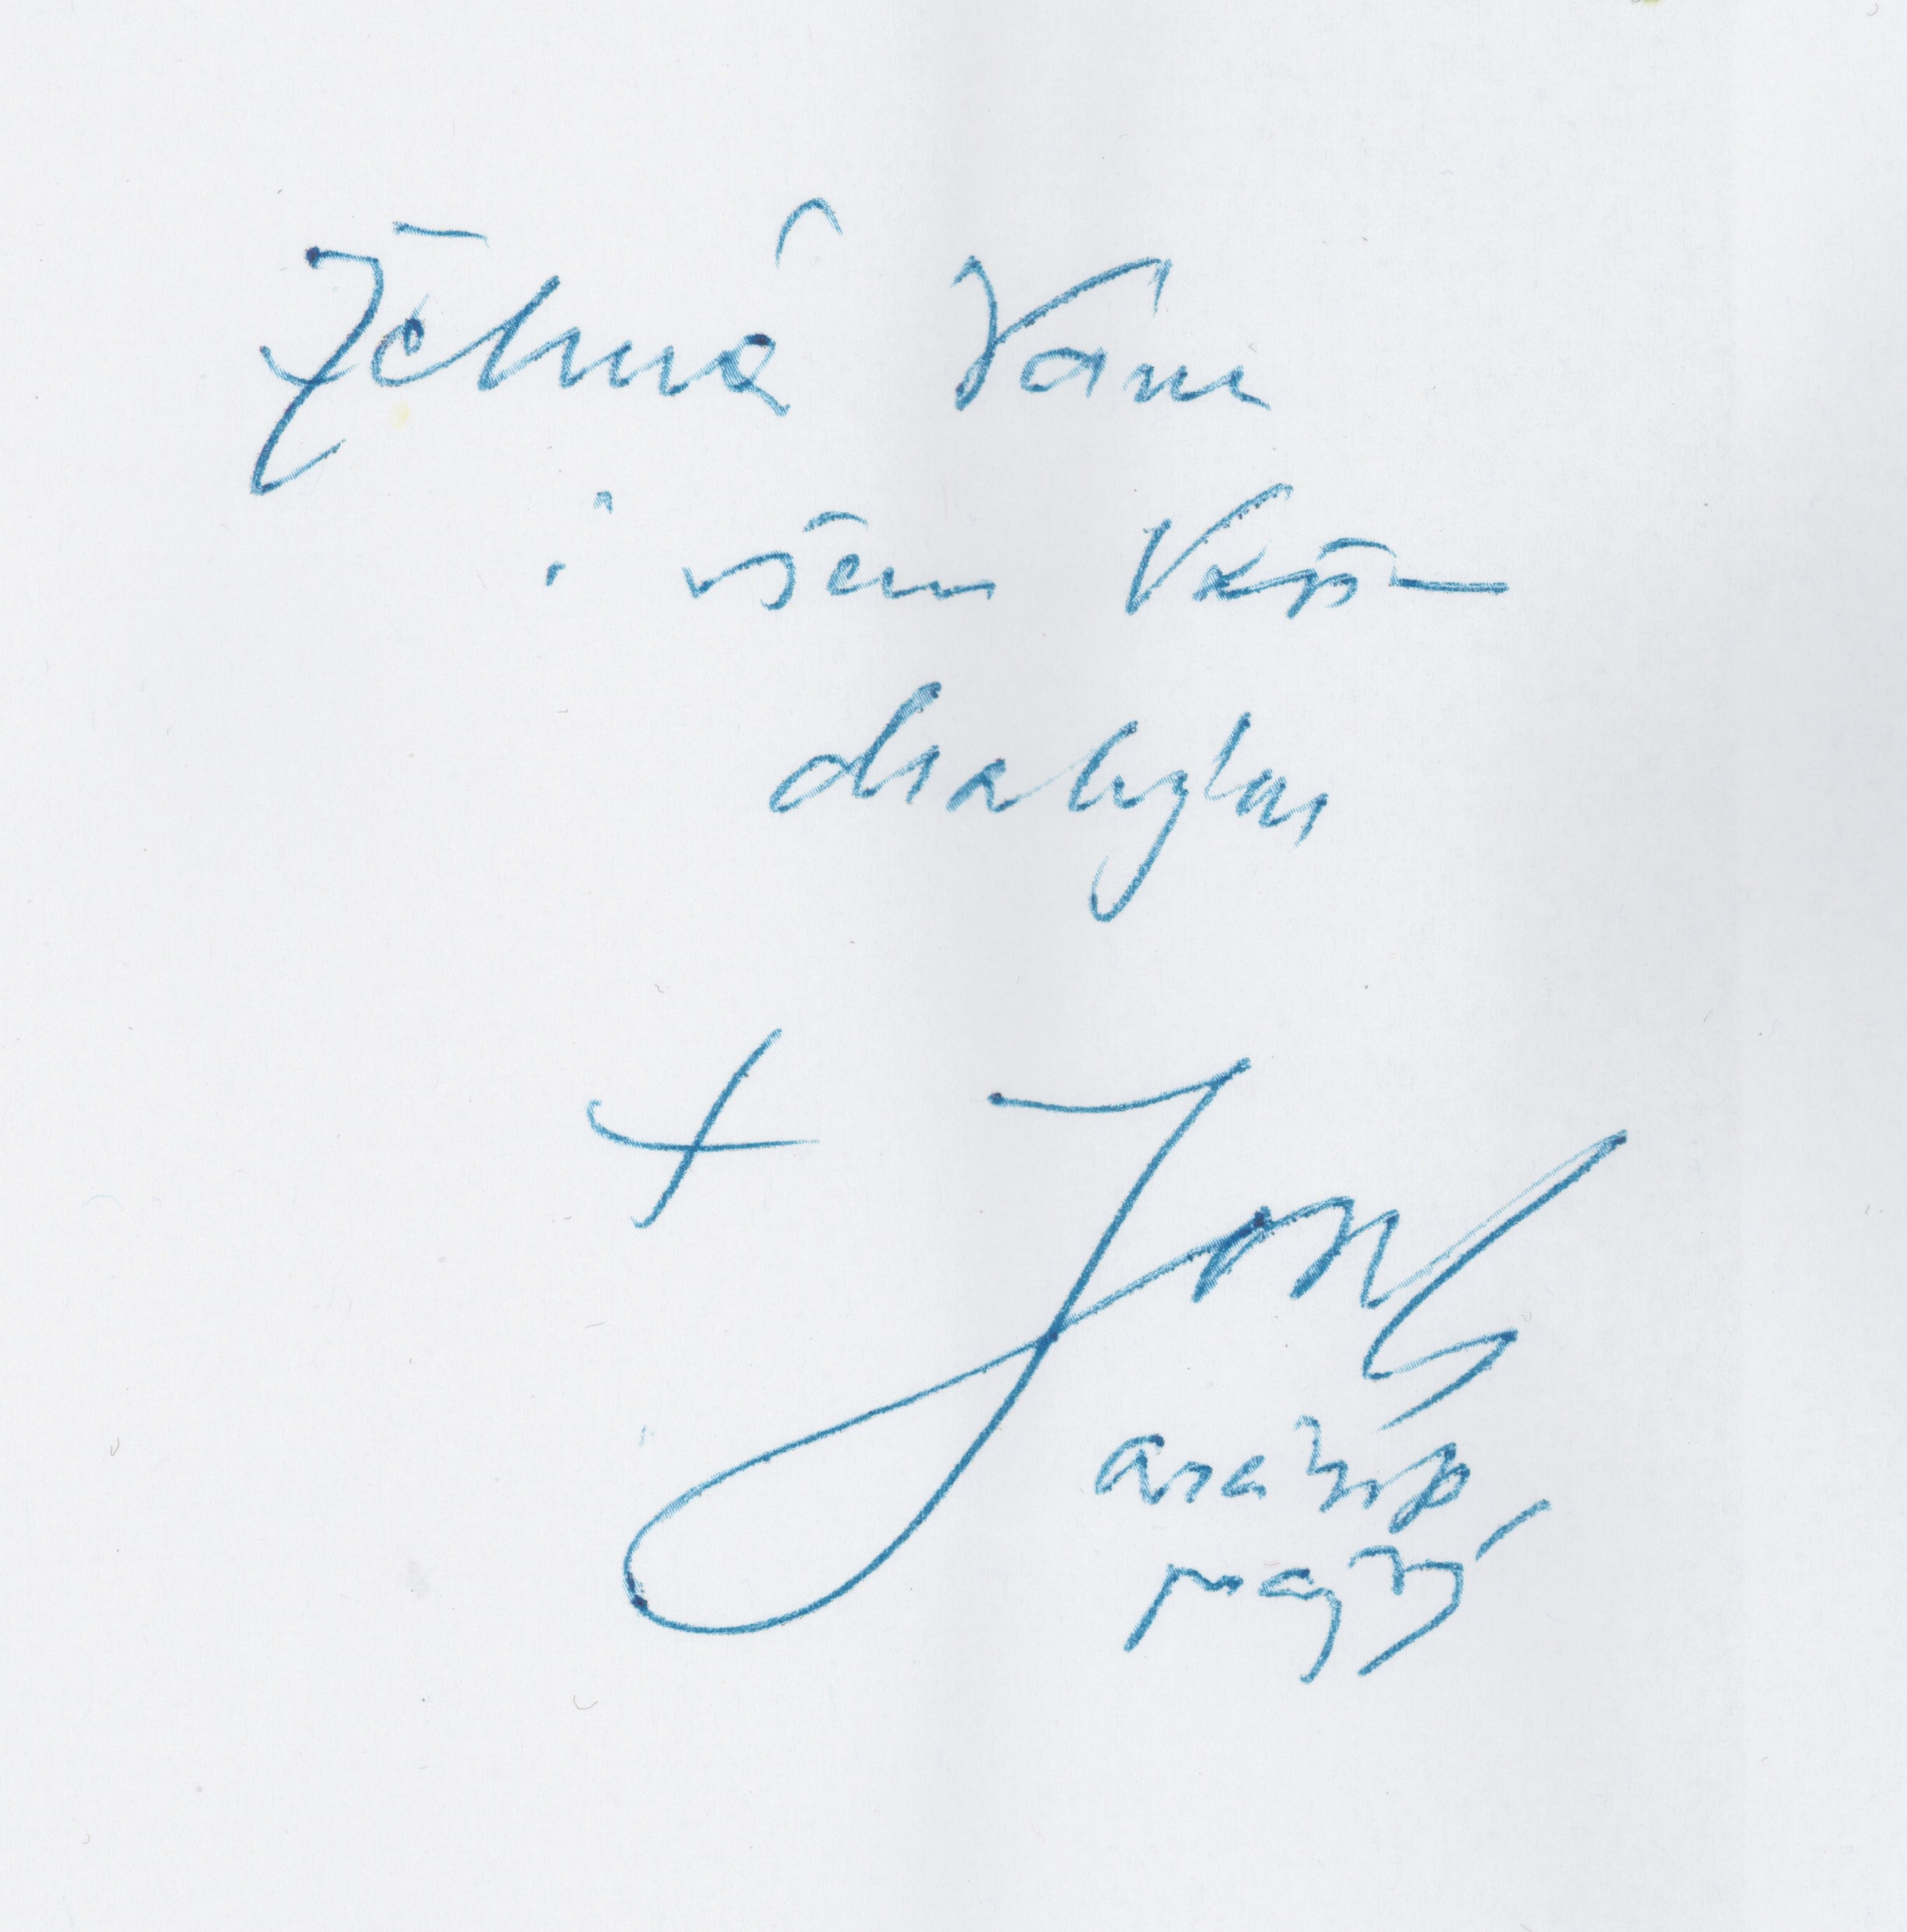 Žehná Vám
i všem Vašim
drahým
+
arcibp
pražský